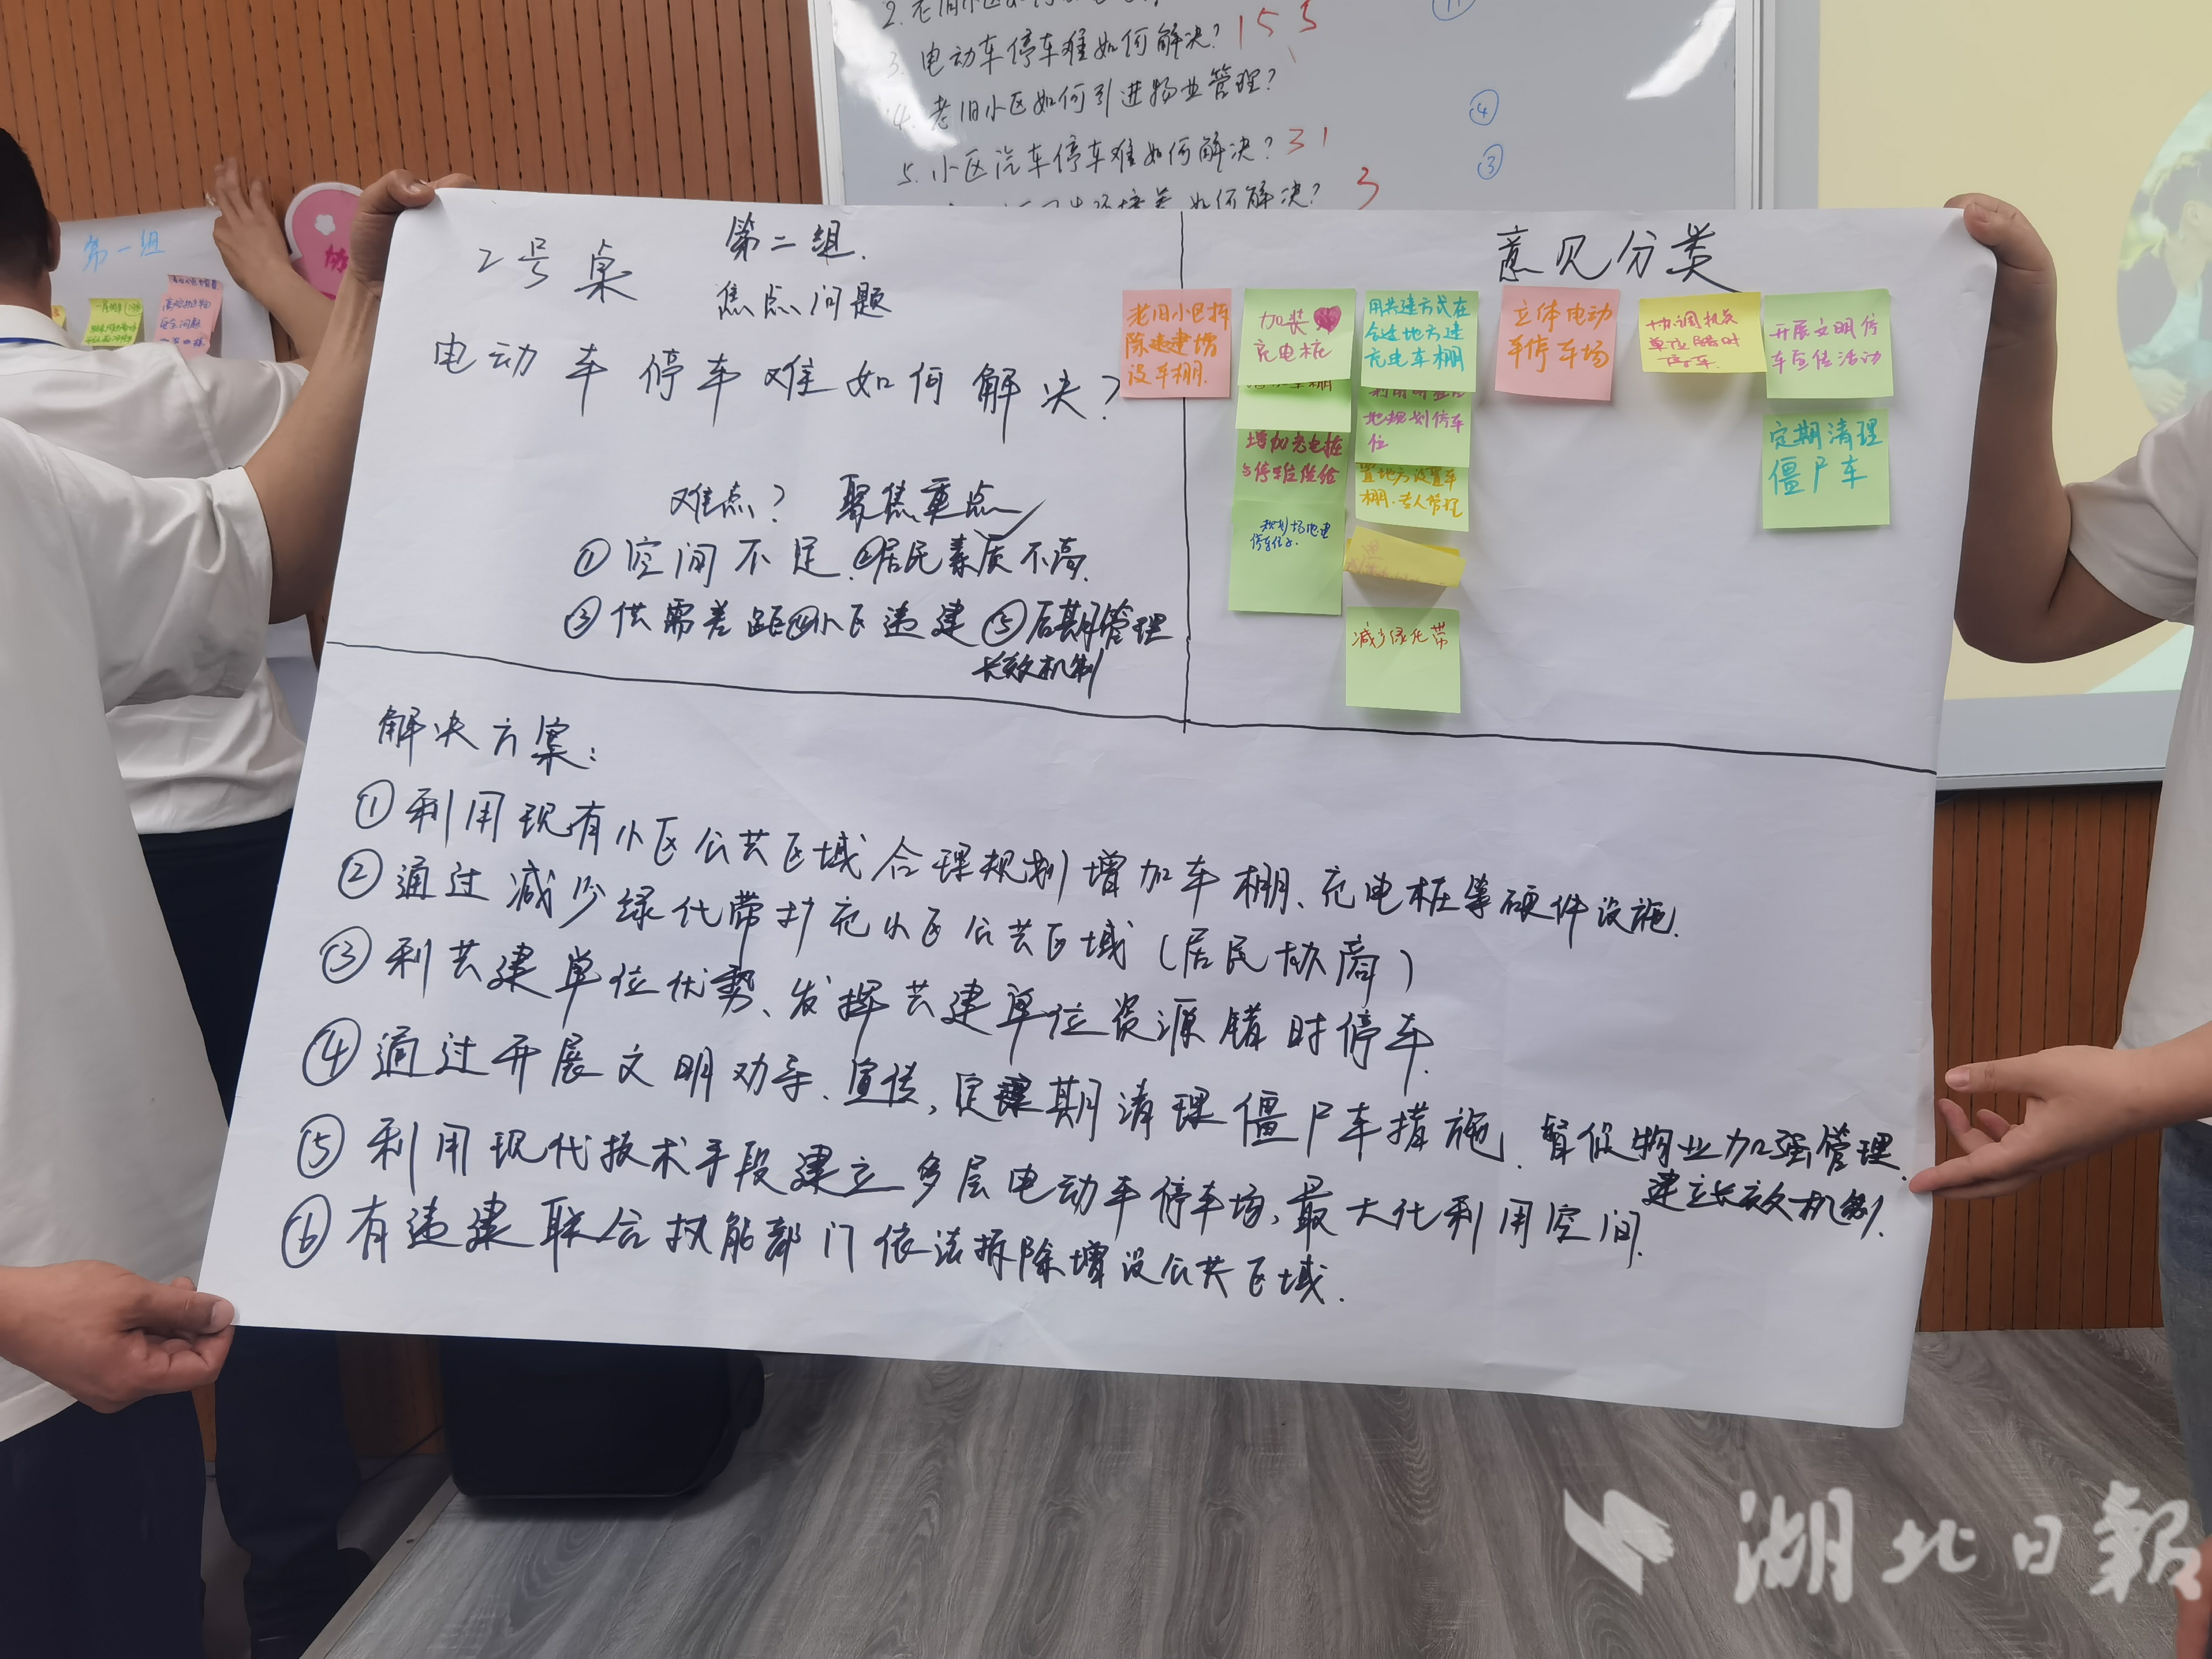 3. 电动车停车难如何解决? 15 5
4. 老旧小区如何引进物业管理?
④
5. 小区汽车停车难如何解决? 31
③
如何解决? 3
第一组
2号桌
第二组.
焦点问题
电动车停车难如何解决?
难点? 聚焦重点
①空间不足.②居民素质不高.
③供需差距④小区违建⑤后期管理
长效机制
意见分类
老旧小区拆
除违建增
设车棚.
加装
充电桩
增加充电桩
与停车位供给
规划场地建
停车位.
用共建方式在
合适地方建
充电车棚
地规划停车
位
置地方设置车
棚.专人管理
减少绿化带
立体电动
车停车场
协调机关
单位错时
停车.
开展文明停
车宣传活动
定期清理
僵尸车
解决方案:
①利用现有小区公共区域合理规划增加车棚、充电桩等硬件设施.
②通过减少绿化带扩充小区公共区域(居民协商)
③利共建单位优势、发挥共建单位资源错时停车.
④通过开展文明劝导、宣传,定期清理僵尸车措施.督促物业加强管理.
建立长效机制.
⑤利用现代技术手段建立多层电动车停车场,最大化利用空间.
⑥有违建联合执能部门依法拆除增设公共区域.
湖北日報